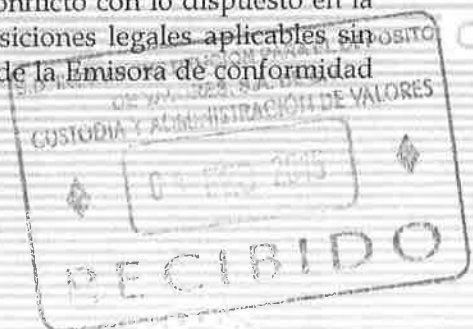 onflicto con lo dispuesto en la
siciones legales aplicables sin
de la Emisora de conformidad
S.D. INDEVAL INSTITUCIÓN PARA EL DEPOSITO
DE VALORES, S.A. DE
CUSTODIA Y ADMINISTRACIÓN DE VALORES
RECIBIDO